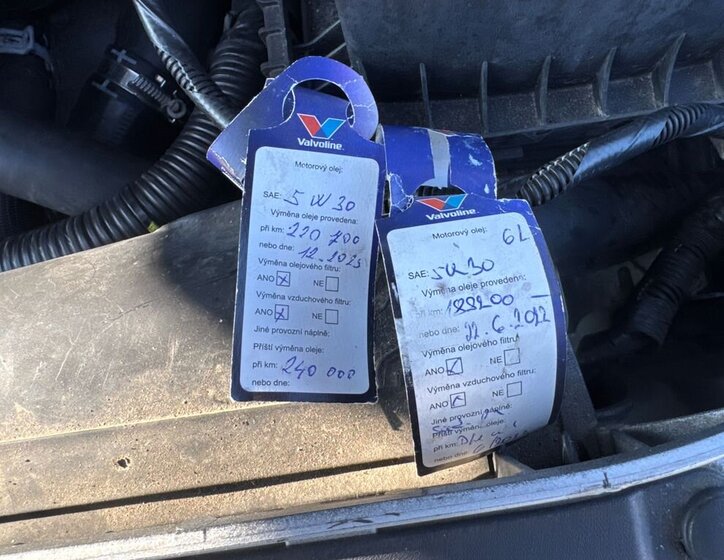 Valvoline
Motorový olej:
SAE: 5W30
Výměna oleje provedena:
při km: 220 700
nebo dne: 12.2023
Výměna olejového filtru:
ANO NE
Výměna vzduchového filtru:
ANO NE
Jiné provozní náplně:
Příští výměna oleje:
při km: 240 000
nebo dne:
Valvoline
Motorový olej: 6L
SAE: 5W30
Výměna oleje provedena:
při km: 188200
nebo dne: 22.6.2022
Výměna olejového filtru:
ANO NE
Výměna vzduchového filtru:
ANO NE
Jiné provozní náplně:
Příští výměna oleje:
při km:
nebo dne: